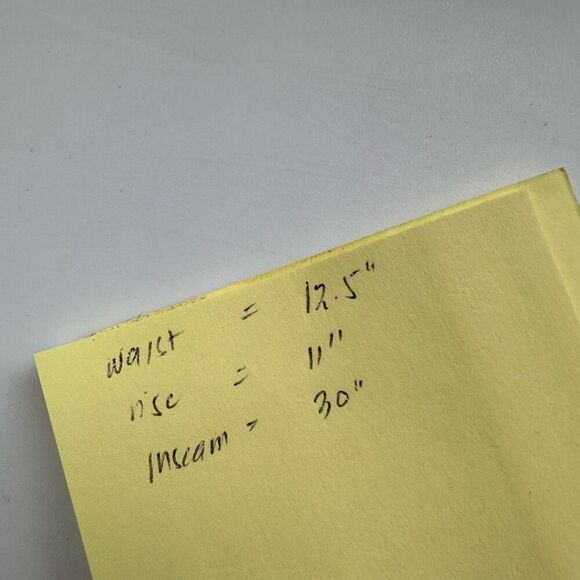 waist = 12.5"
rise = 11"
Inseam = 30"